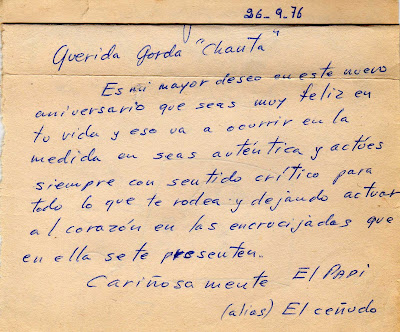 26-9-76
Querida Gorda "Chanta"
Es mi mayor deseo en este nuevo
aniversario que seas muy feliz en
tu vida y eso va a ocurrir en la
medida en seas auténtica y actúes
siempre con sentido crítico para
todo lo que te rodea y dejando actuar
al corazón en las encrucijadas que
en ella se te presenten.
Cariñosamente El PAPI
(alias) El ceñudo